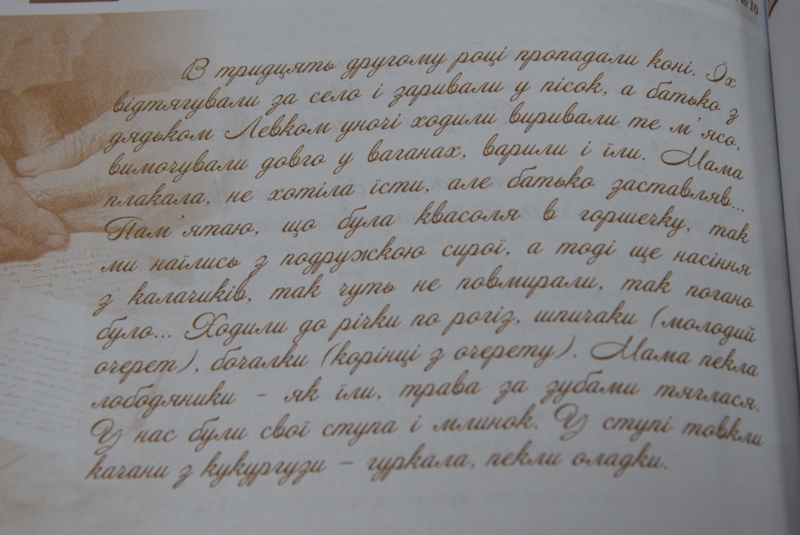 № 10
В тридцять другому році пропадали коні. Їх
відтягували за село і заривали у пісок, а батько з
дядьком Левком уночі ходили виривали те м'ясо,
вимочували довго у ваганах, варили і їли. Мама
плакала, не хотіла їсти, але батько заставляв...
Пам'ятаю, що була квасоля в горшечку, так
ми наїлись з подружкою сирої, а тоді ще насіння
з калачиків, так чуть не повмирали, так погано
було... Ходили до річки по рогіз, шпичаки (молодий
очерет), бочалки (корінці з очерету). Мама пекла
лободяники - як їли, трава за зубами тяглася.
У нас були свої ступа і млинок. У ступі товкли
качани з кукургузи – гуркала, пекли оладки.